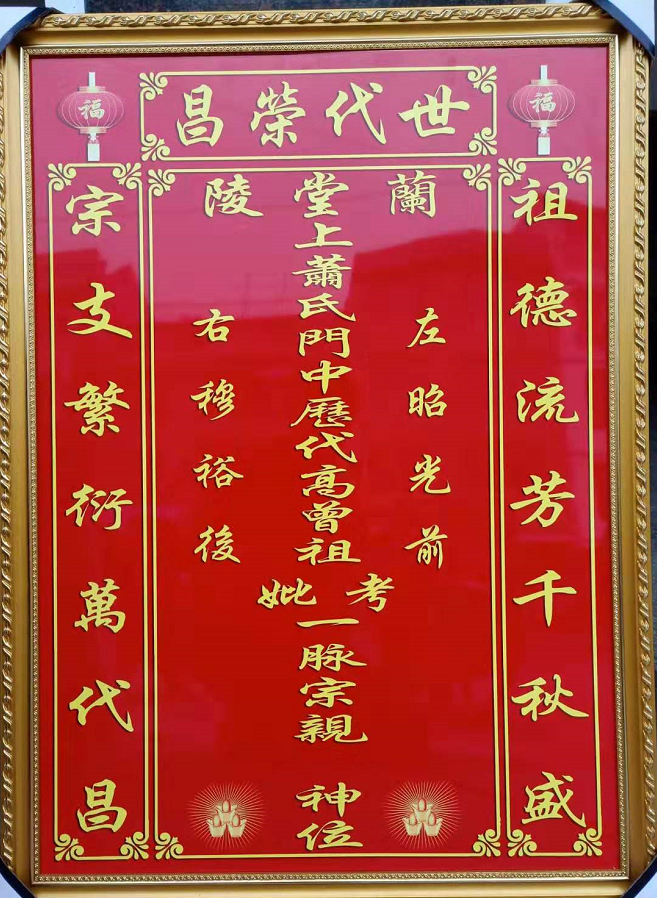 世代榮昌
福
福
祖德流芳千秋盛
蘭陵
左昭光前
堂上蕭氏門中歷代高曾祖
考妣
一脉宗親
神位
右穆裕後
宗支繁衍萬代昌